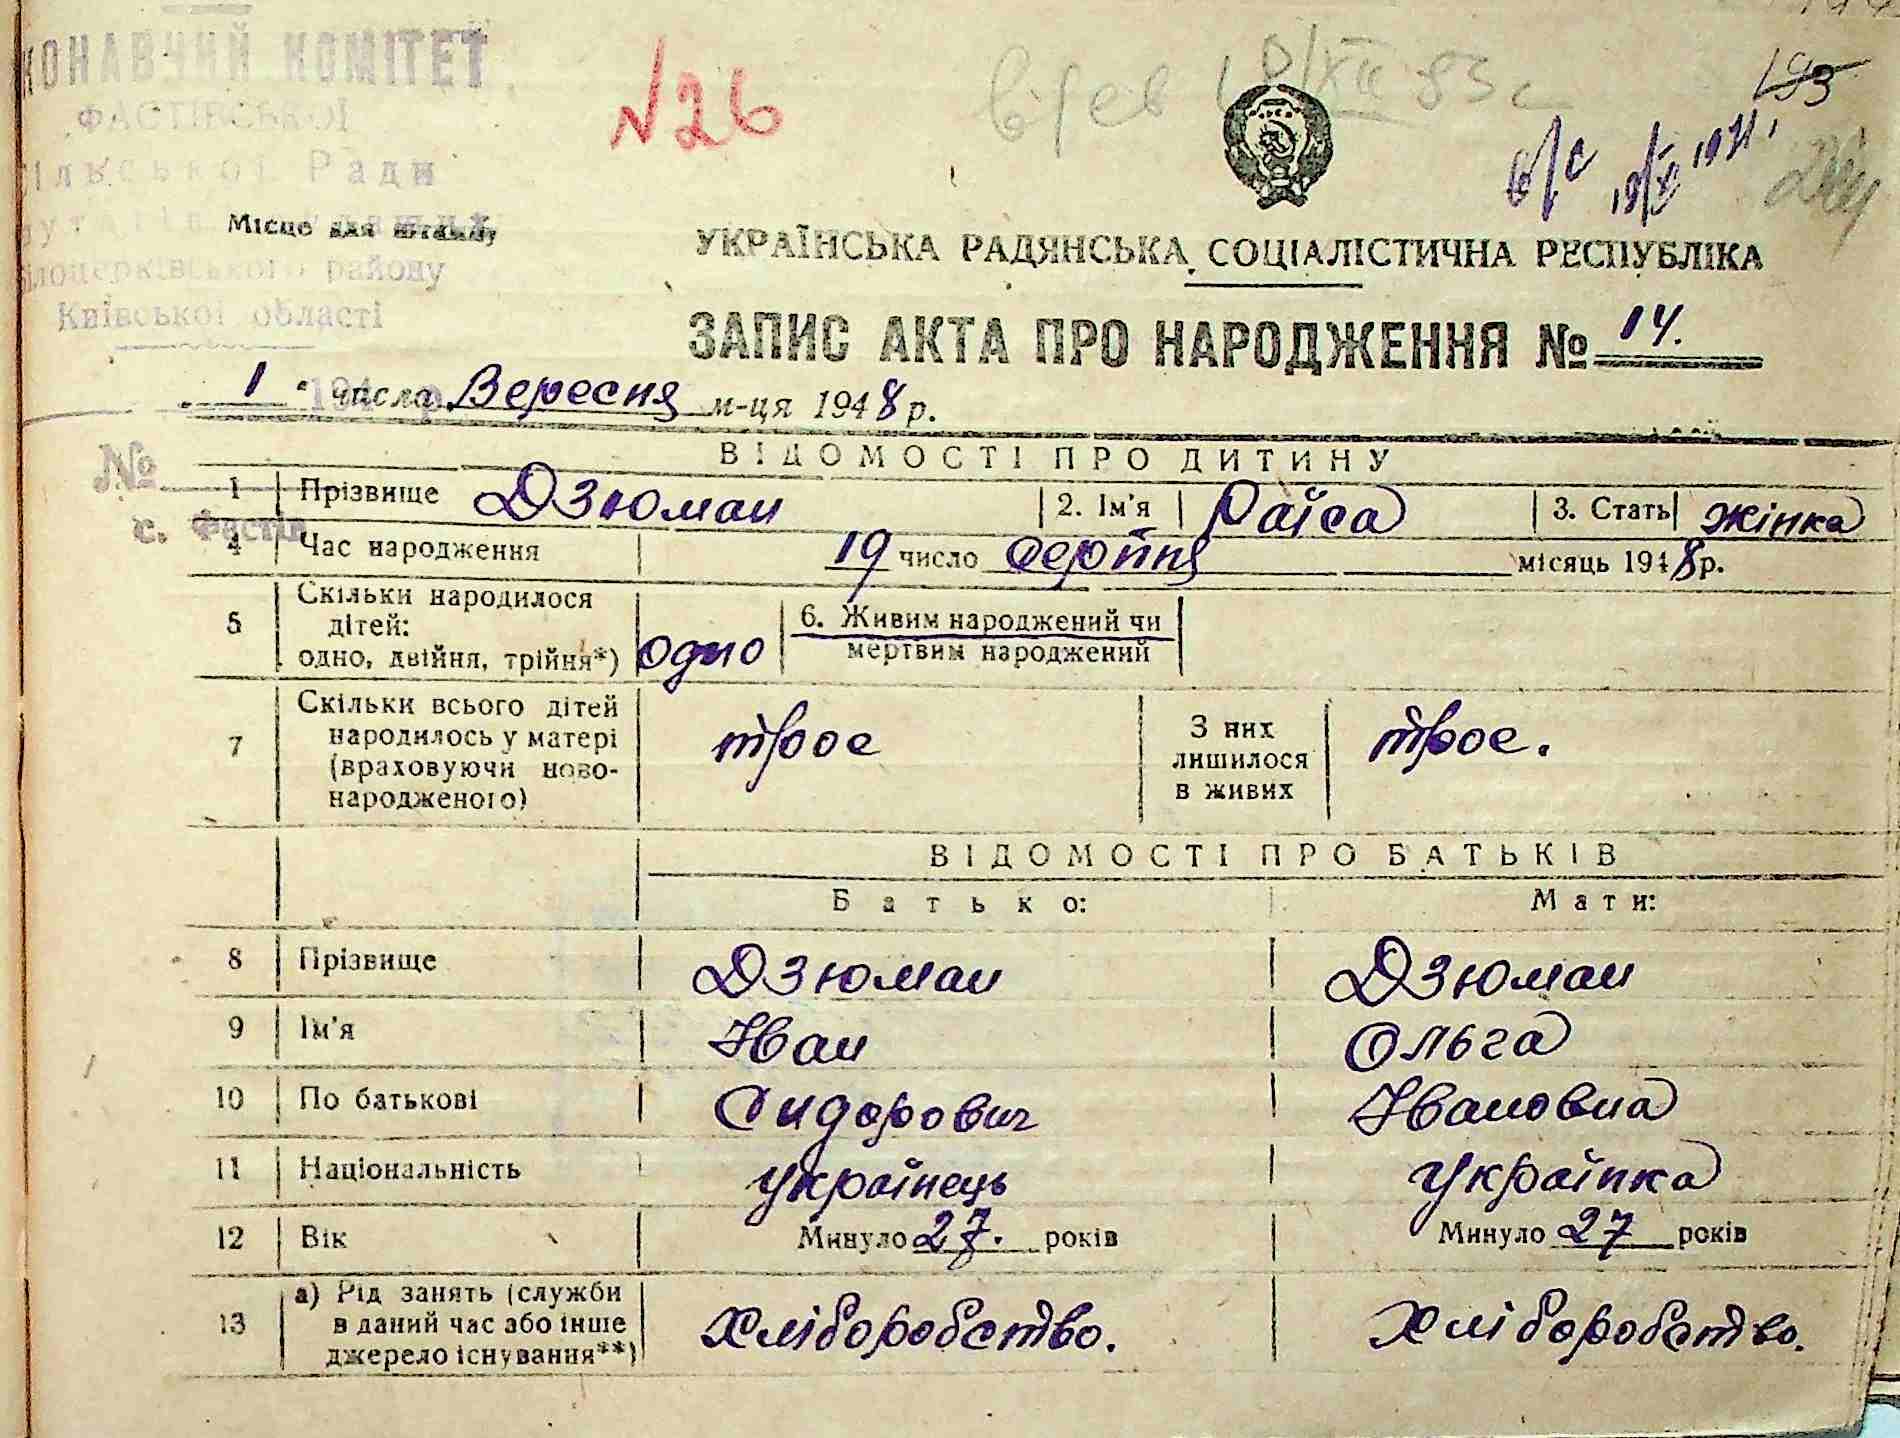 КОНАВЧИЙ КОМІТЕТ
ФАСТІВСЬКОЇ
ільської Ради
Місце для штампу
ілоцерківського району
Київської області
194 р.
№
с. Фастів
№26
193
в/с 19/XI 1971.
УКРАЇНСЬКА РАДЯНСЬКА СОЦІАЛІСТИЧНА РЕСПУБЛІКА
ЗАПИС АКТА ПРО НАРОДЖЕННЯ № 14.
1 числа Вересня м-ця 1948 р.
ВІДОМОСТІ ПРО ДИТИНУ
1 Прізвище Дзюман 2. Ім'я Раїса 3. Стать жінка
4 Час народження 19 число серпня місяць 1948 р.
5 Скільки народилося дітей: одно, двійня, трійня*) одно 6. Живим народжений чи мертвим народжений
7 Скільки всього дітей народилось у матері (враховуючи новонародженого) троє З них лишилося в живих троє.
ВІДОМОСТІ ПРО БАТЬКІВ
Батько: Мати:
8 Прізвище Дзюман Дзюман
9 Ім'я Іван Ольга
10 По батькові Сидорович Івановна
11 Національність українець українка
12 Вік Минуло 27. років Минуло 27 років
13 а) Рід занять (служби в даний час або інше джерело існування**) Хліборобство. Хліборобство.